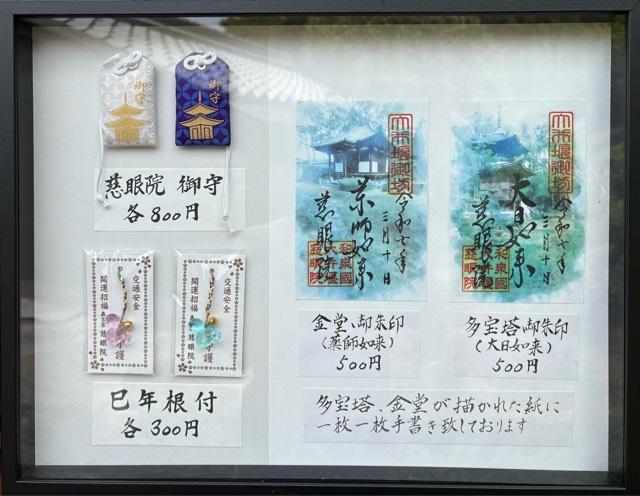 御守
御守
慈眼院 御守
各800円
交通安全
開運招福
慈眼院
護
交通安全
開運招福
慈眼院
護
巳年根付
各300円
大井堰御坊
令和七年
三月十日
薬師如来
慈眼院
和泉國
大井堰
慈眼院
金堂、御朱印
(薬師如来)
500円
大井堰御坊
令和七年
三月十日
大日如来
慈眼院
和泉國
慈眼院
多宝塔御朱印
(大日如来)
500円
多宝塔、金堂が描かれた紙に
一枚一枚手書き致しております